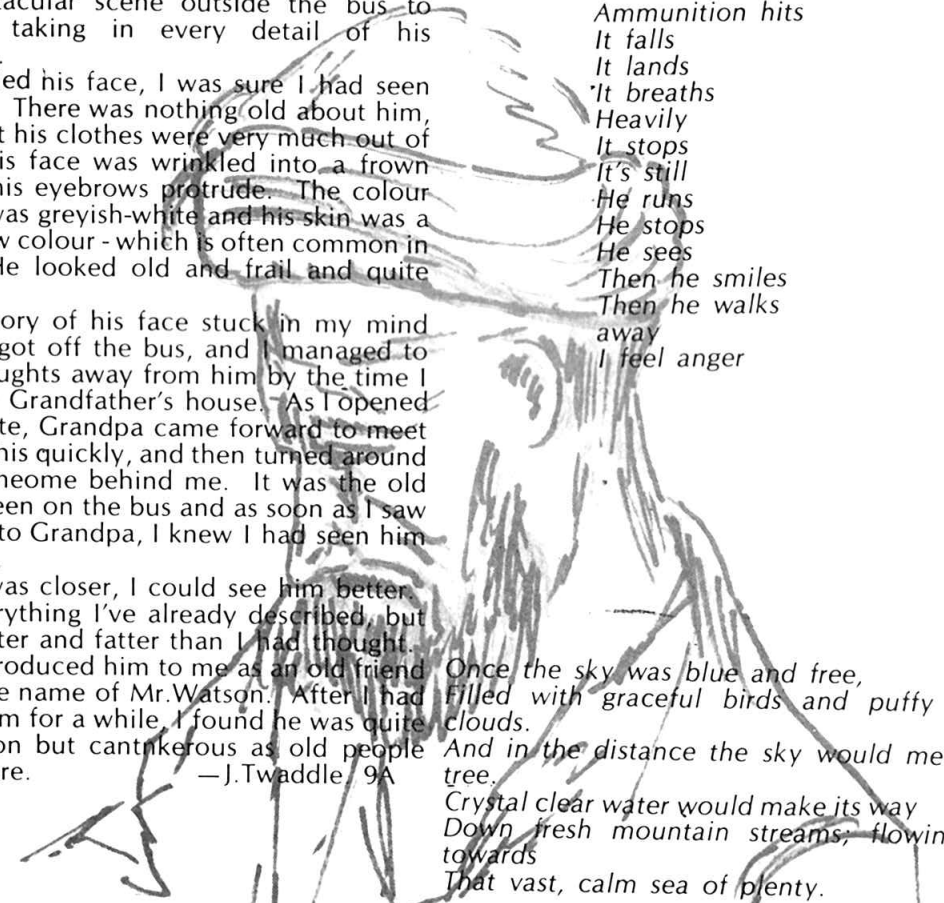 scene outside the bus to
taking in every detail of his
his face, I was sure I had seen
There was nothing old about him,
his clothes were very much out of
face was wrinkled into a frown
eyebrows protrude. The colour
was greyish-white and his skin was a
colour - which is often common in
He looked old and frail and quite
of his face stuck in my mind
got off the bus, and I managed to
away from him by the time I
Grandfather's house. As I opened
Grandpa came forward to meet
quickly, and then turned around
behind me. It was the old
on the bus and as soon as I saw
to Grandpa, I knew I had seen him
was closer, I could see him better.
I've already described, but
and fatter than I had thought.
him to me as an old friend
name of Mr.Watson. After I had
for a while, I found he was quite
but cantnkerous as old people
—J.Twaddle, 9A
Ammunition hits
It falls
It lands
It breaths
Heavily
It stops
It's still
He runs
He stops
He sees
Then he smiles
Then he walks
away
I feel anger
Once the sky was blue and free,
Filled with graceful birds and puffy
clouds.
And in the distance the sky would
tree.
Crystal clear water would make its way
Down fresh mountain streams;
towards
That vast, calm sea of plenty.